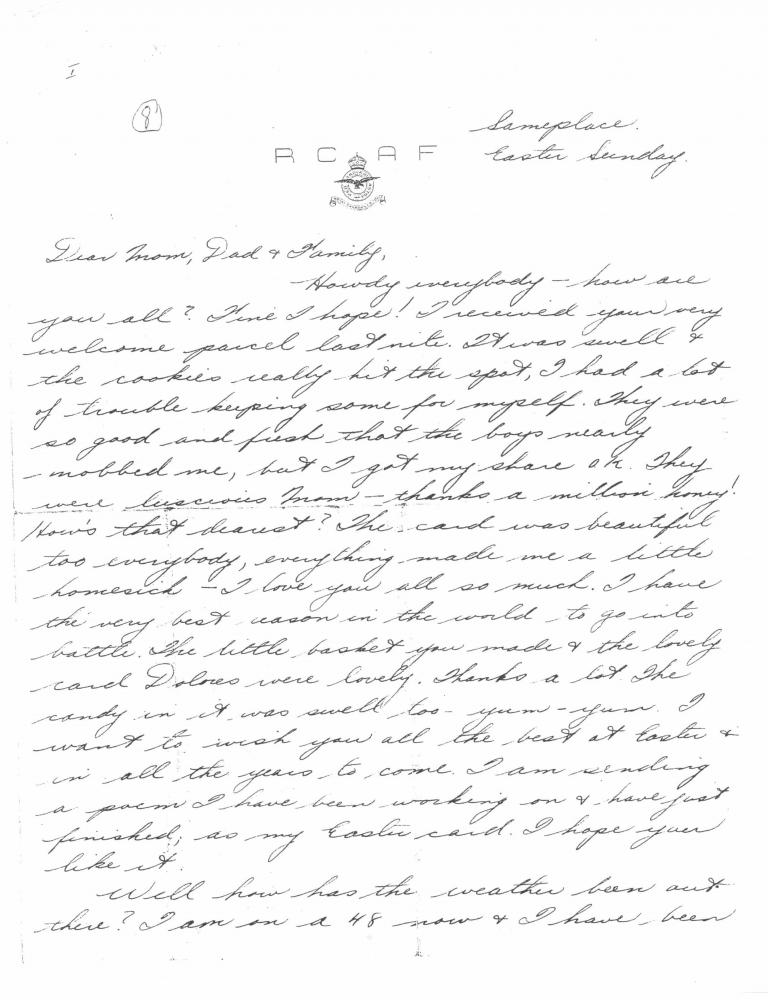 I
8
Sameplace.
R C A F
Easter Sunday.
Dear Mom, Dad & Family,
Howdy everybody - how are
you all? Fine I hope! I received your very
welcome parcel last nite. It was swell &
the cookies really hit the spot, I had a lot
of trouble keeping some for myself. They were
so good and fresh that the boys nearly
mobbed me, but I got my share ok. They
were luscious Mom - thanks a million honey!
How's that dearest? The card was beautiful
too everybody, everything made me a little
homesick - I love you all so much. I have
the very best reason in the world to go into
battle. The little basket you made & the lovely
card Dolores were lovely. Thanks a lot. The
candy in it was swell too - yum - yum. I
want to wish you all the best at Easter &
in all the years to come. I am sending
a poem I have been working on & have just
finished, as my Easter card. I hope you
like it.
Well how has the weather been out
there? I am on a 48 now & I have been